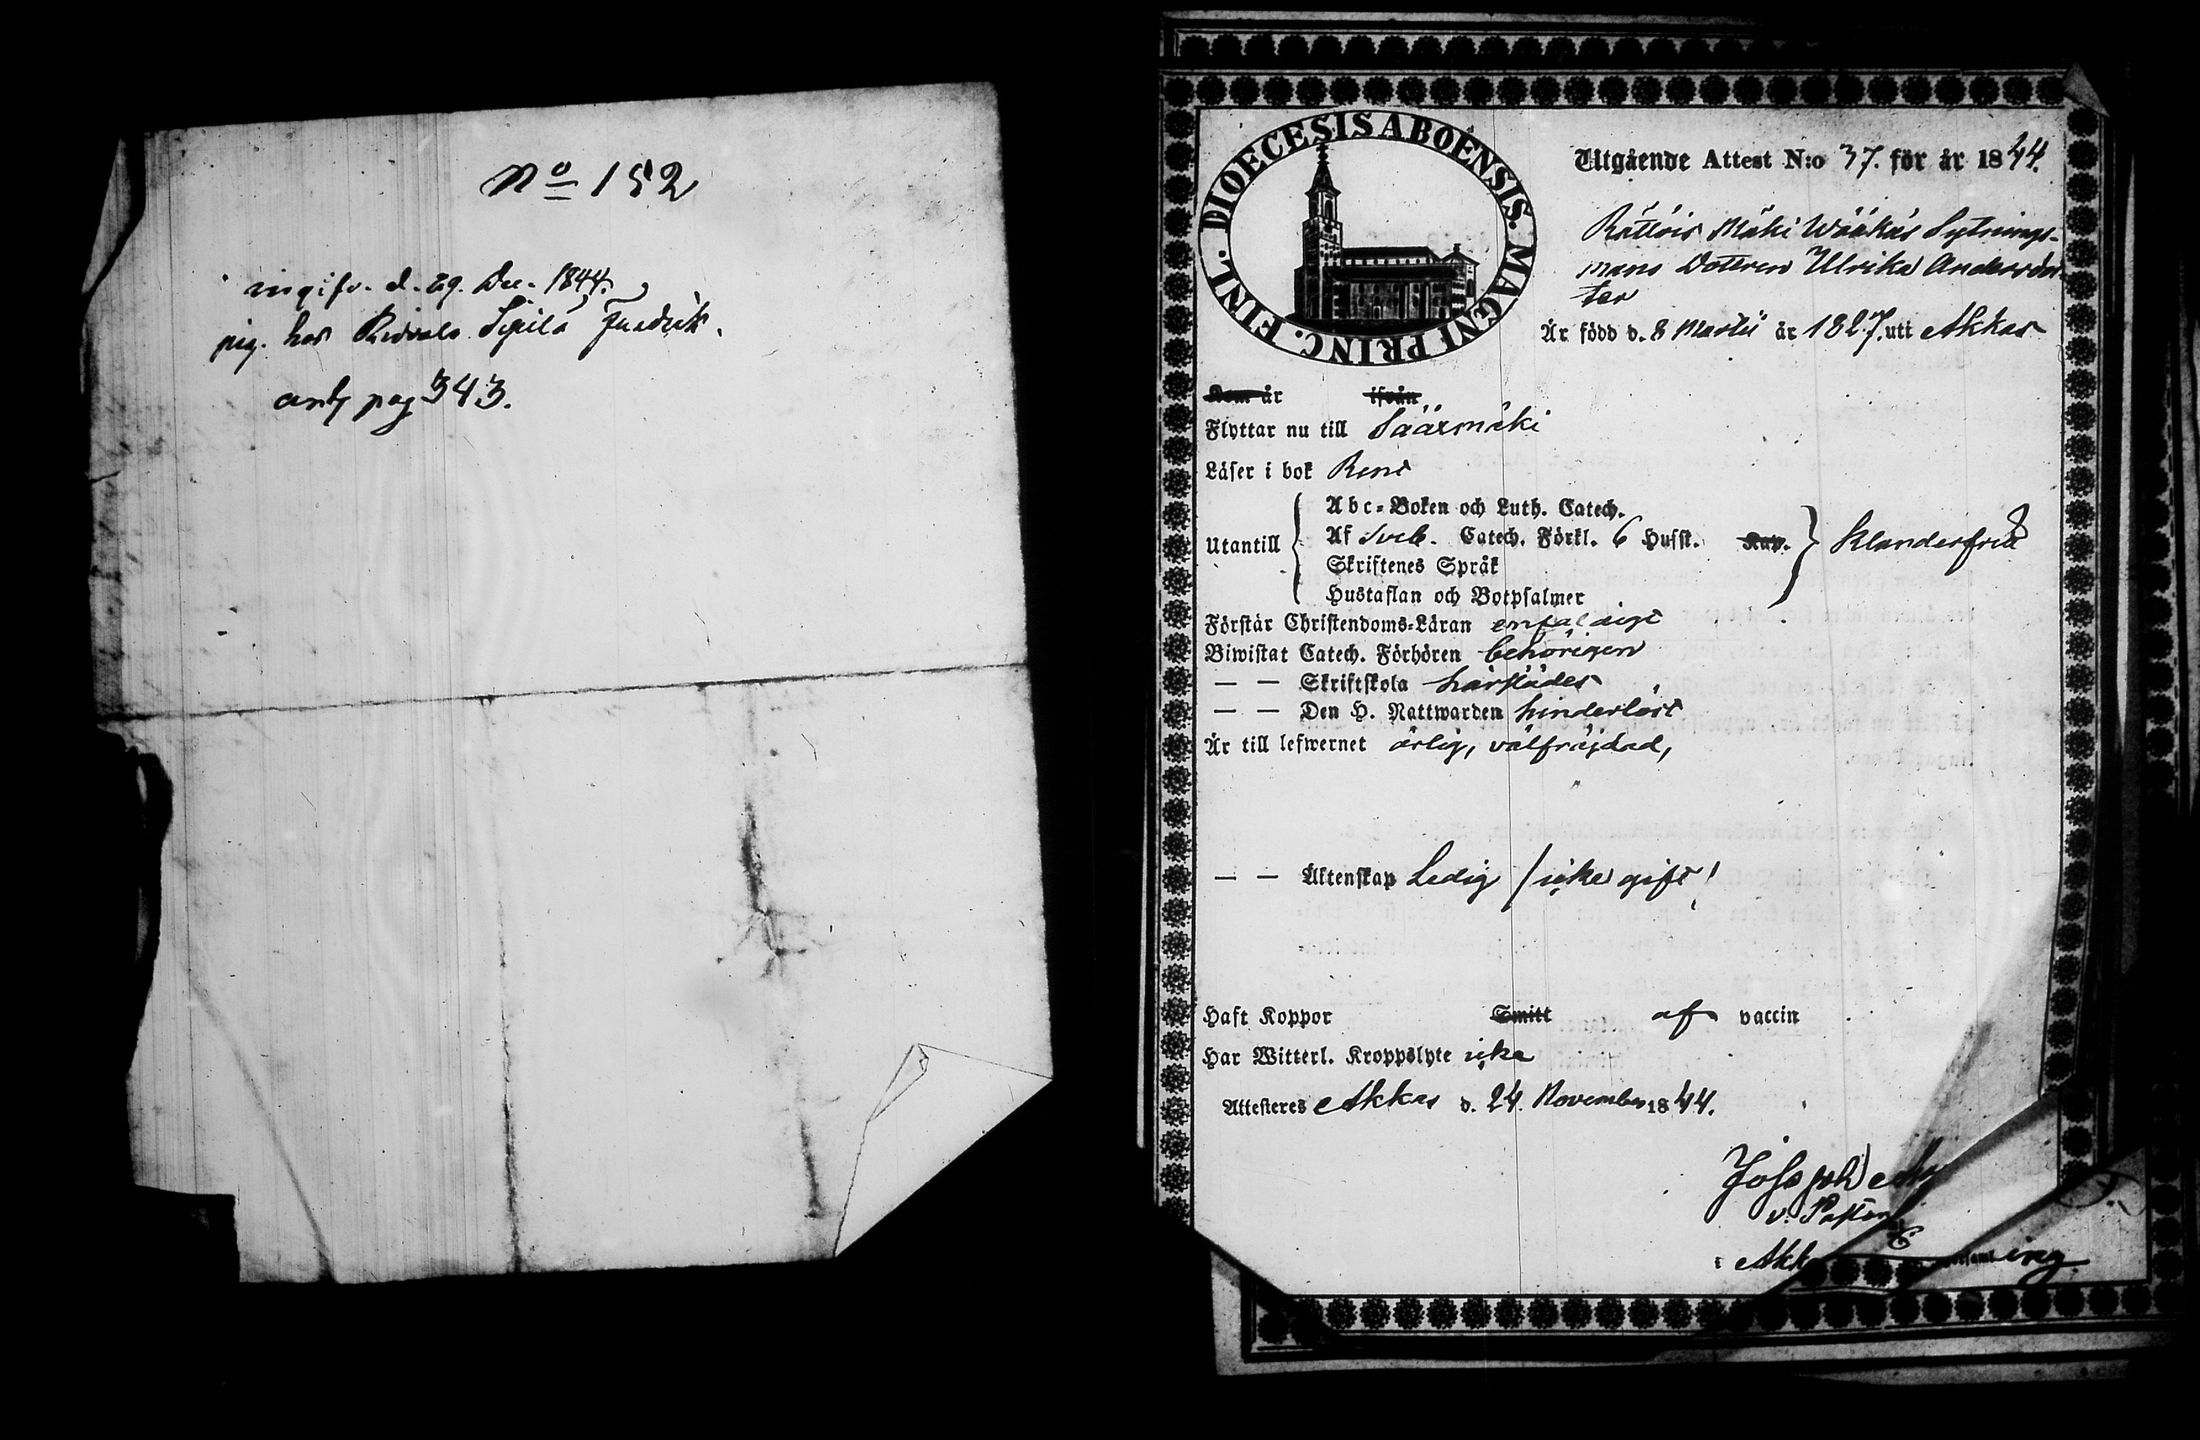 No 152
ingifv. d. 29. Dec. 1844.
pig. hos Ridvala Sipilä Fredrik.
ant pag 343.
DIOECESIS ABOËNSIS. MAGNI PRINC. FINL.
Utgående Attest N:o 37. för år 1844.
Rättöis Mäki Wääkäs Sytnings-
mans Dottren Ulrika Andersdot-
ter
Är född d. 8 Martii år 1827. uti Akkas
Kom år ifrån
Flyttar nu till Säåxmäki
Läser i bok Rent
Utantill
Abc-Boken och Luth. Catech.
Af Sveb. Catech. Förkl. 6 Hufst. Kap.
Skriftenes Språk
Hustaflan och Botpsalmer
Klanderfritt
Förstår Christendoms-Läran enfaldigt
Biwistat Catech. Förhören behörigen
— — Skriftskola härstädes
— — Den H. Nattwarden hinderlöst
Är till lefwernet ärlig, välfräjdad,
— — Äktenskap Ledig / icke gift /
Haft Koppor Smitt af vaccin
Har Witterl. Kroppslyte icke
Attesteres Akkas d. 24. November 1844.
Joseph
v. Pastor
i Akk ing.